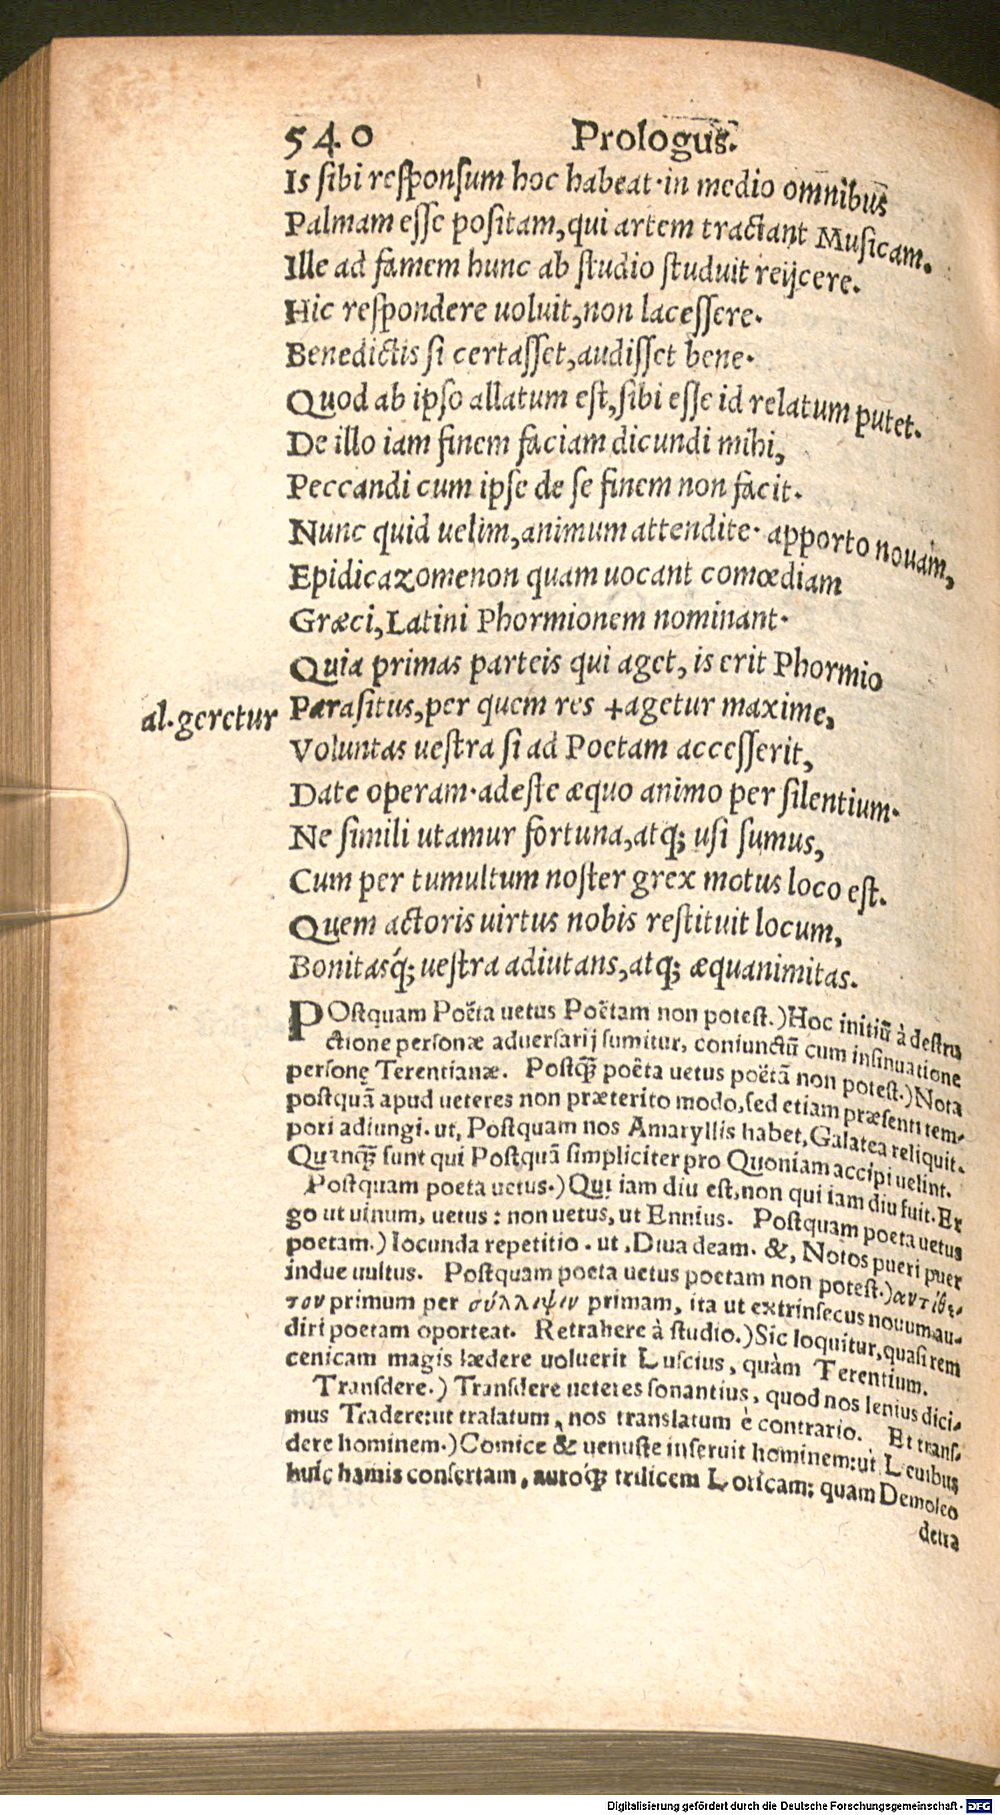 540 Prologus.
Is sibi responsum hoc habeat·in medio omnibus
Palmam esse positam,qui artem tractant Musicam.
Ille ad famem hunc ab studio studuit reijcere.
Hic respondere uoluit,non lacessere.
Benedictis si certasset,audisset bene.
Quod ab ipso allatum est,sibi esse id relatum putet.
De illo iam finem faciam dicundi mihi,
Peccandi cum ipse de se finem non facit.
Nunc quid uelim,animum attendite· apporto nouam,
Epidicazomenon quam uocant comœdiam
Græci,Latini Phormionem nominant.
Quia primas parteis qui aget, is erit Phormio
al.geretur Parasitus,per quem res +agetur maxime,
Voluntas uestra si ad Poetam accesserit,
Date operam·adeste æquo animo per silentium.
Ne simili utamur fortuna,atq; usi sumus,
Cum per tumultum noster grex motus loco est.
Quem actoris uirtus nobis restituit locum,
Bonitasq́; uestra adiutans,atq; æquanimitas.
POstquam Poëta uetus Poëtam non potest.)Hoc initiū à destru
ctione personæ aduersarij sumitur, coniunctū cum insinuatione
personę Terentianæ. Postq̃ poëta uetus poëtā non potest.)Nota
postquā apud ueteres non præterito modo,sed etiam præsenti tem-
pori adiungi.ut, Postquam nos Amaryllis habet,Galatea reliquit.
Quanq̃ sunt qui Postquā simpliciter pro Quoniam accipi uelint.
Postquam poeta uetus.)Qui iam diu est,non qui iam diu fuit.Er
go ut uinum, uetus: non uetus, ut Ennius. Postquam poeta uetus
poetam.) Iocunda repetitio. ut,Diua deam. &, Notos pueri puer
indue uultus. Postquam poeta uetus poetam non potest.)αντίθε-
τον primum per σύλληψιν primam, ita ut extrinsecus nouum au-
diri poetam oporteat. Retrahere à studio.)Sic loquitur,quasi rem
cenicam magis lædere uoluerit Luscius, quàm Terentium.
Transdere.) Transdere ueteres sonantius, quod nos lenius dici-
mus Tradere:ut tralatum, nos translatum è contrario. Et trans-
dere hominem.)Comice & uenuste inseruit hominem:ut Leuibus
huic hamis consertam, auroq́; trilicem Loricam: quam Demoleo
detra
Digitalisierung gefördert durch die Deutsche Forschungsgemeinschaft - DFG